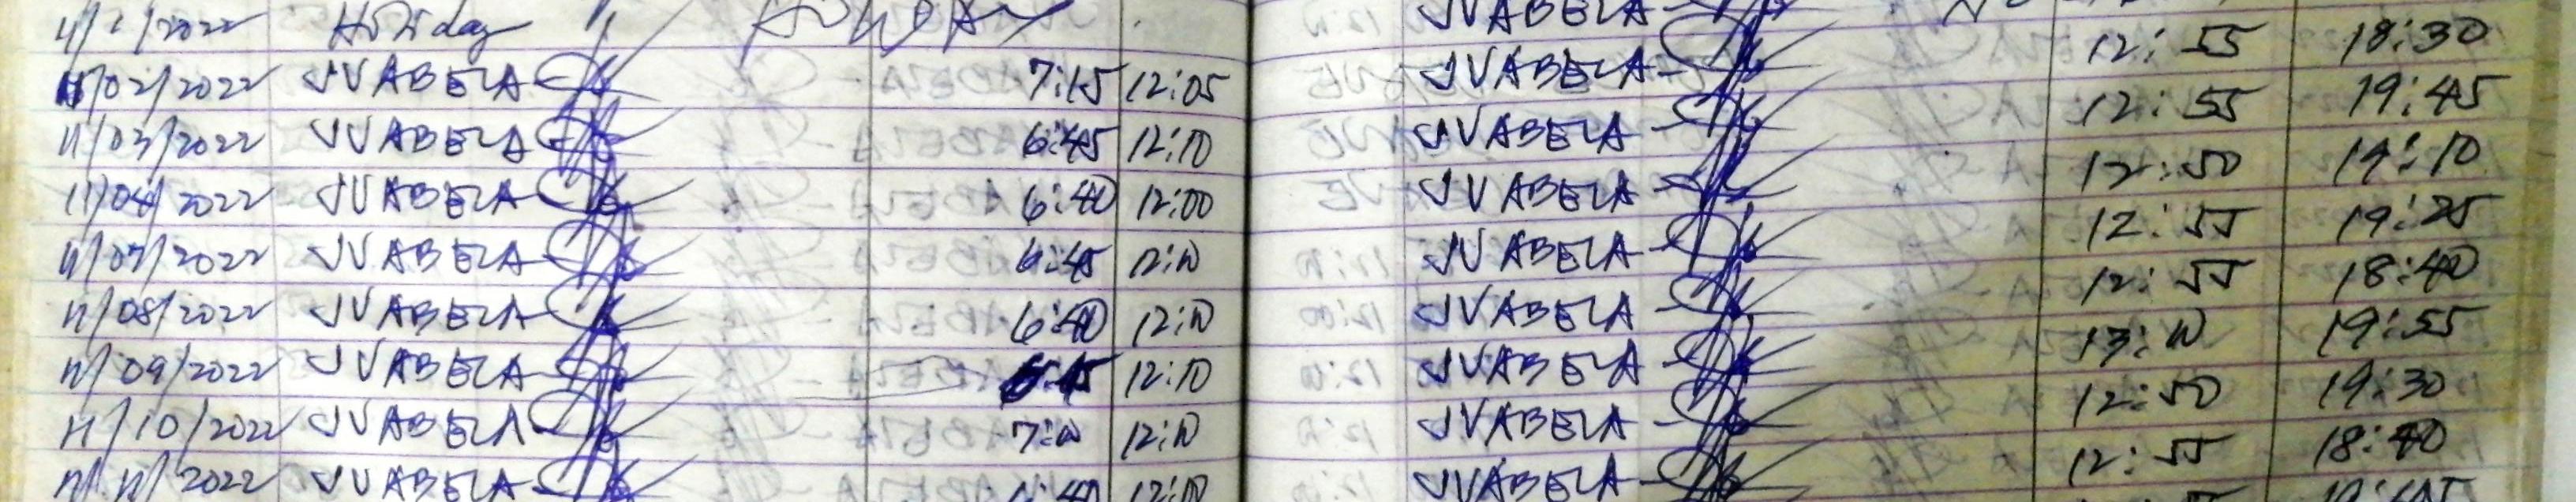 11/1/2022 Holiday HOLIDAY
11/02/2022 JVABELA 7:15 12:05
11/03/2022 JVABELA 6:45 12:10
11/04/2022 JVABELA 6:40 12:00
11/07/2022 JVABELA 6:45 12:10
11/08/2022 JVABELA 6:40 12:10
11/09/2022 JVABELA 12:10
11/10/2022 JVABELA 7:10 12:10
11/11/2022 JVABELA 6:40 12:00
JVABELA
JVABELA 12:55 18:30
JVABELA 12:55 19:45
JVABELA 12:50 19:10
JVABELA 12:55 19:25
JVABELA 12:55 18:40
JVABELA 13:10 19:55
JVABELA 12:50 19:30
JVABELA 12:55 18:40